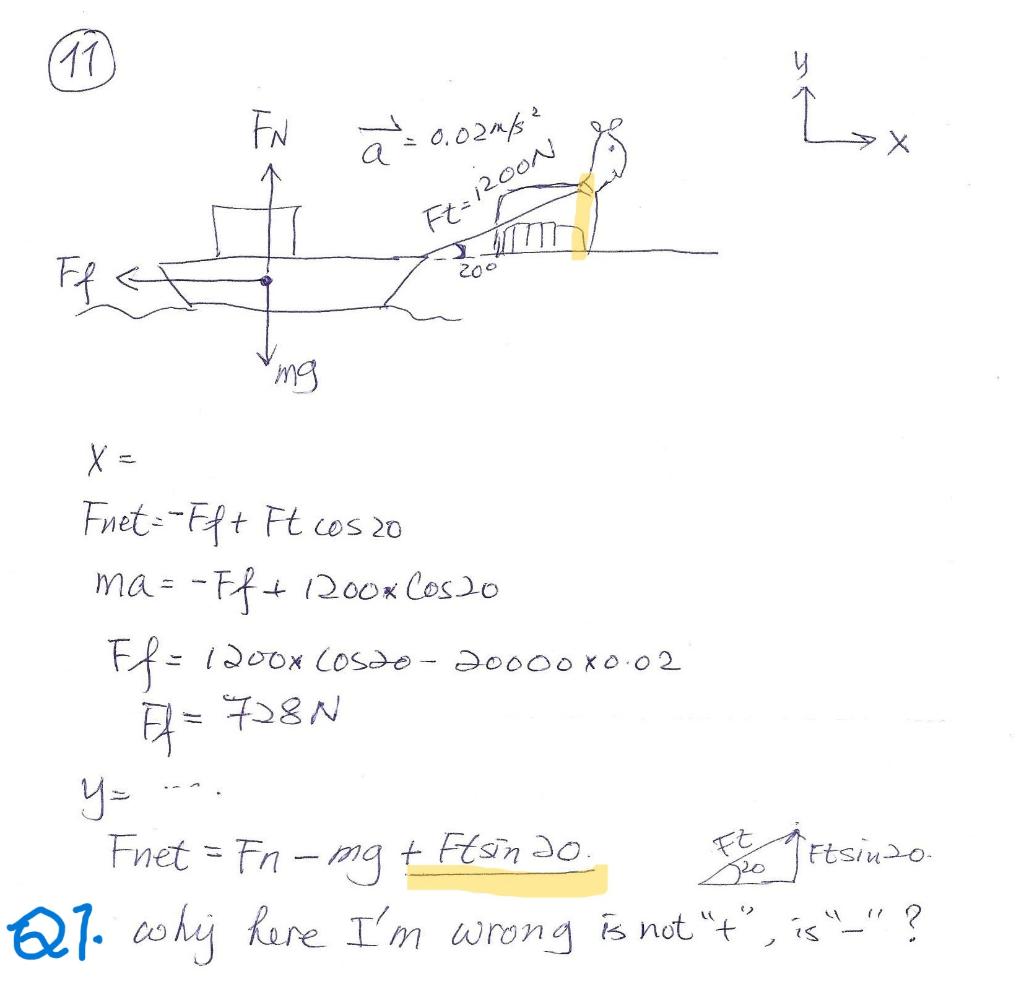 11
y
x
FN
a = 0.02m/s²
Ft=1200N
Ff
20°
mg
X =
Fnet=-Ff+ Ft cos20
ma = -Ff + 1200×Cos20
Ff = 1200×cos20 - 20000×0.02
Ff = 728N
y= ....
Fnet = Fn - mg + Ftsin20.
Ft
20
Ftsin20.
Q1. why here I'm wrong is not "+", is "-" ?